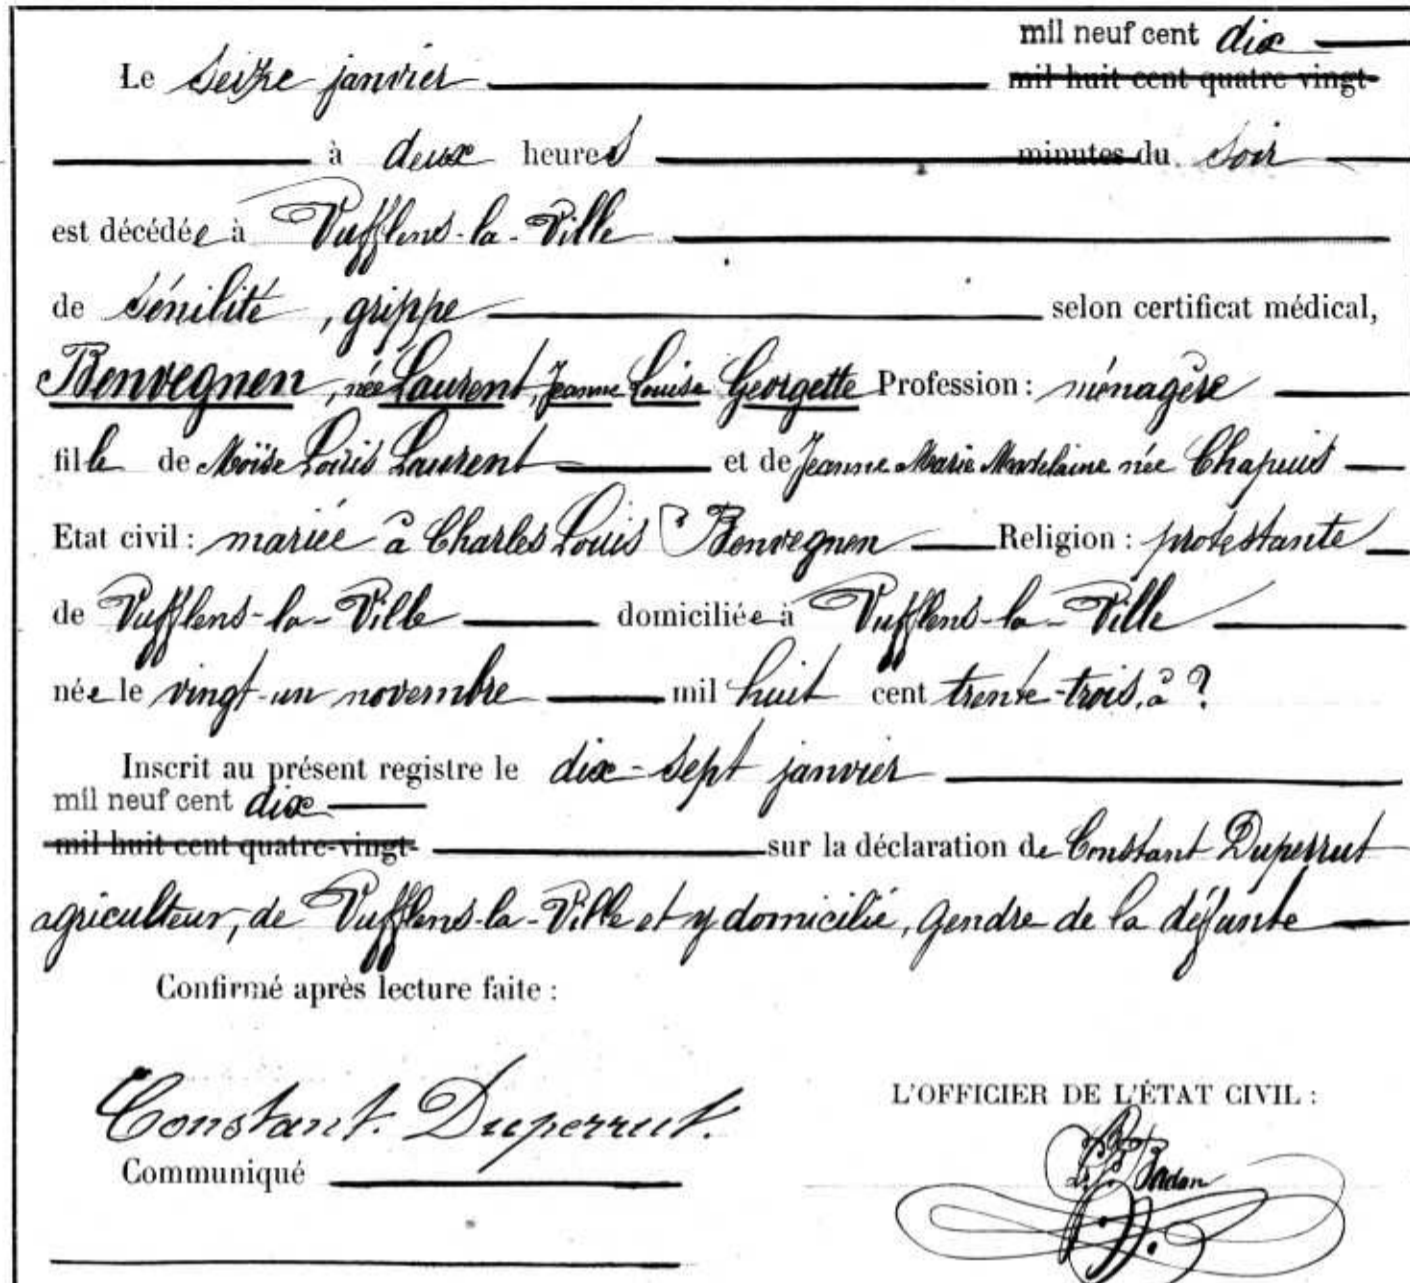 mil neuf cent dix
Le seize janvier mil huit cent quatre vingt-
à deux heures minutes du soir
est décédée à Vufflens-la-Ville
de sénilité, grippe selon certificat médical,
Benvegnen, née Laurent, Jeanne Louise Georgette Profession : ménagère
fille de Moïse Louis Laurent et de Jeanne Marie Madelaine née Chapuis
Etat civil : mariée à Charles Louis Benvegnen Religion : protestante
de Vufflens-la-Ville domiciliée à Vufflens-la-Ville
née le vingt-un novembre mil huit cent trente-trois, à ?
Inscrit au présent registre le dix-sept janvier
mil neuf cent dix
mil huit cent quatre-vingt- sur la déclaration de Constant Duperrut
agriculteur, de Vufflens-la-Ville et y domicilié, gendre de la défunte
Confirmé après lecture faite :
Constant Duperrut.
L'OFFICIER DE L'ÉTAT CIVIL :
Communiqué